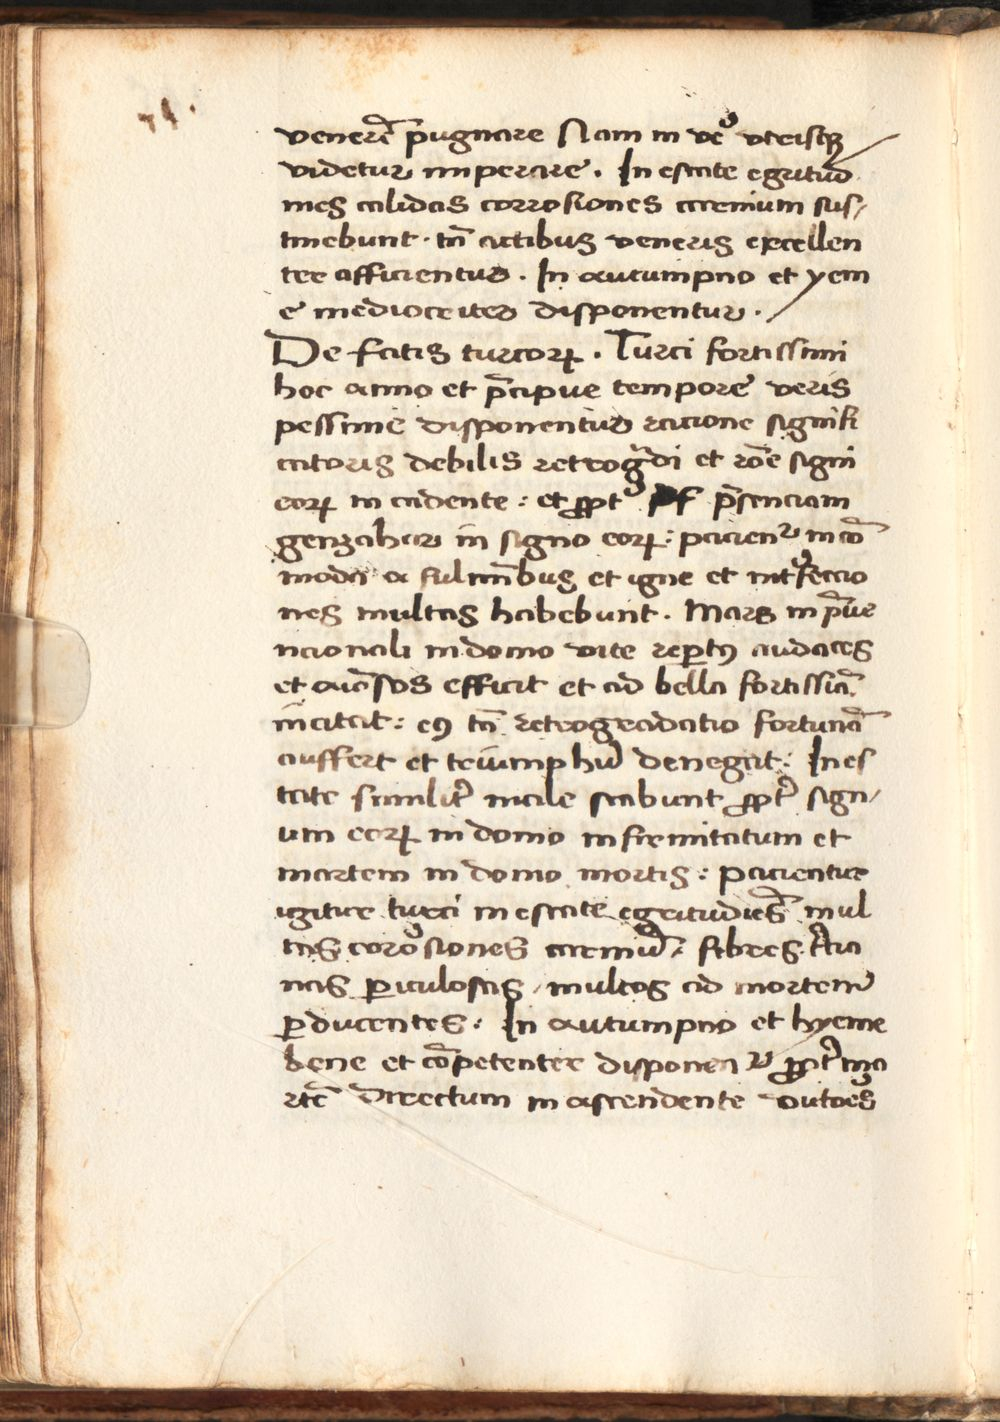 74.
venerē p̄ugnare Nam in ve᷒ utrisqȝ
videtur imperare. In estate egritud
ines calidas corrosiones arenium sus,
tinebunt. tn̄ actibus veneris excellen
ter afficientur. In autumpno et yem
e mediocriter disponentur.
De fatis turcorꝝ. Turci fortissimi
hoc anno et p̄cipue tempore veris
pessime disponentur racione signifi
catoris debilis retrog̃di et rōe signi
eorꝝ in cadente: et ꝓpt᷒ p̄senciam
genzahar in signo eorꝝ: pacient᷒ incō
moda a fulminibus et igne et int᷒feccio
nes multas habebunt. Mars in p̄ue
ncionali in domo vite rep̄tꝰ audaces
et āiosos efficit et ad bella fortissiā
incitat: eꝰ tn̄ retrogradatio fortunā
auffert et triumphū denegat: In es
tate similit᷒ male stabunt ꝓpt᷒ sign,
um eorꝝ in domo infirmitatum et
martem in domo mortis: pacientur
igitur turci in estate egritudiēs mul
tas coro᷒siones areniū. febres
nas ꝑiculosas, multos ad mortem
ꝑducentes: In autumpno et hyeme
bene et cōpetenter disponent᷒ ꝓpt᷒ ma
rtē directum in ascendente